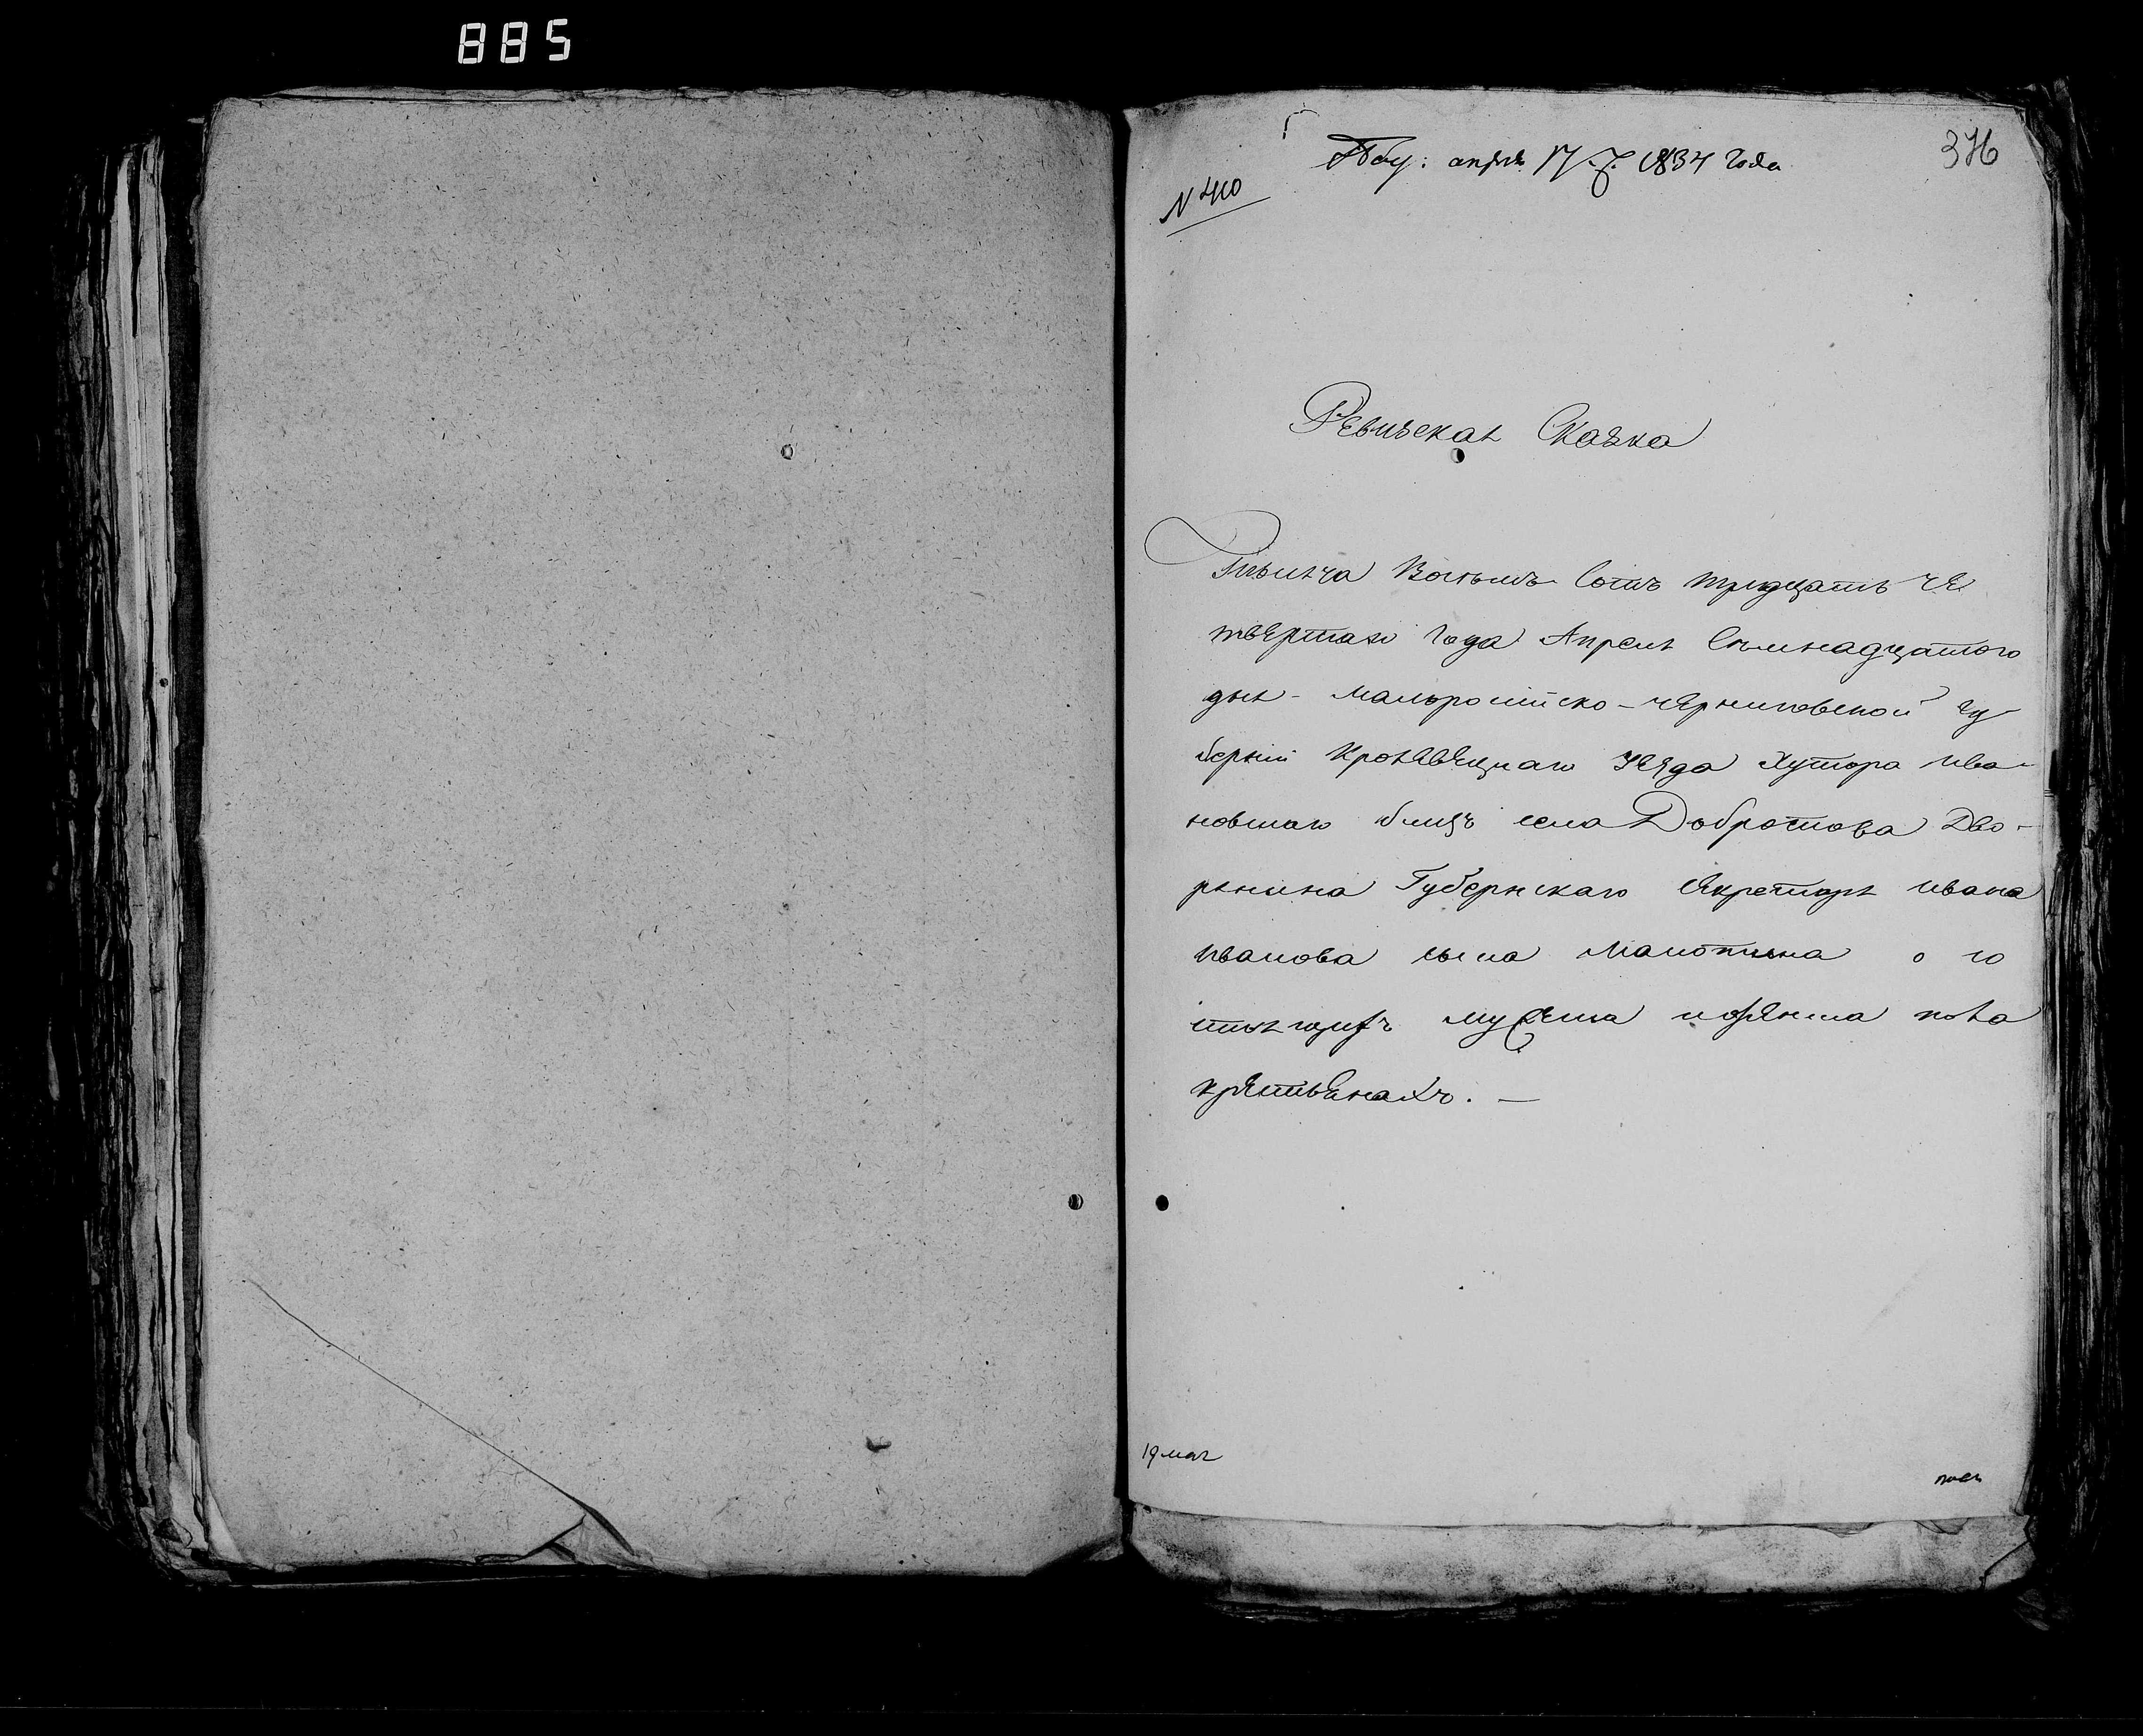 885
376
апрля 17. 1834 года
N 410
Ревизская Сказка
Тысяча Восемь Сотъ тридцать че
твертаго года Апреля Семнадцатого
дня - малоросийско - черниговской гу
берний Кролевецкаго уезда Хутора Ива-
новскаго близь села Добротова Дво-
рянина Губернскаго секретаря Ивана
Иванова сына о со
стоящихъ мужеска и женска пола
крестьянахъ. —
19 мая